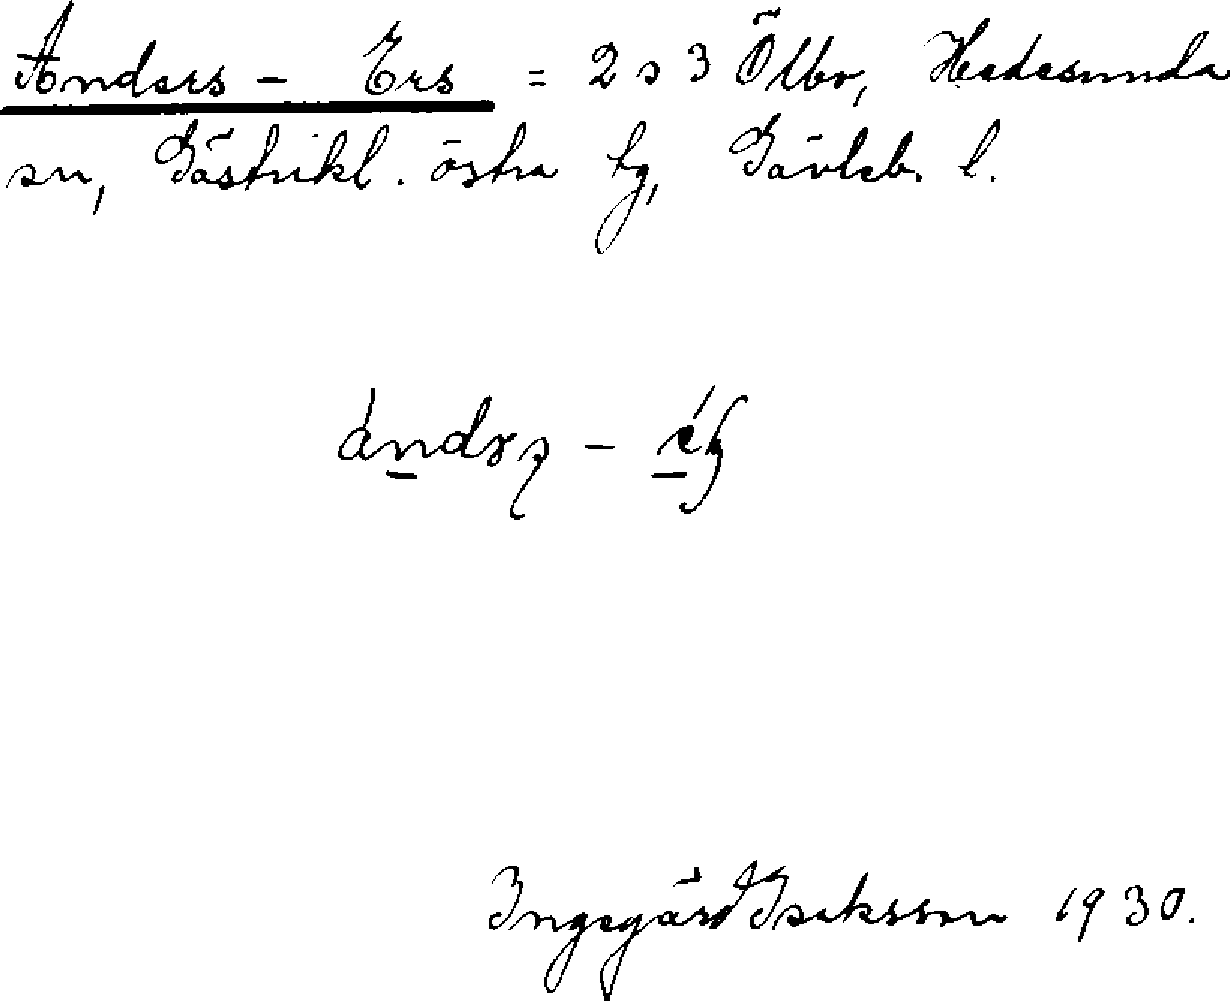 Anders - Ers = 2 o 3 Ölbo, Hedesunda
sn, Gästrikl. östra tg, Gävleb. l.
Ingegärd Isaksson 1930.